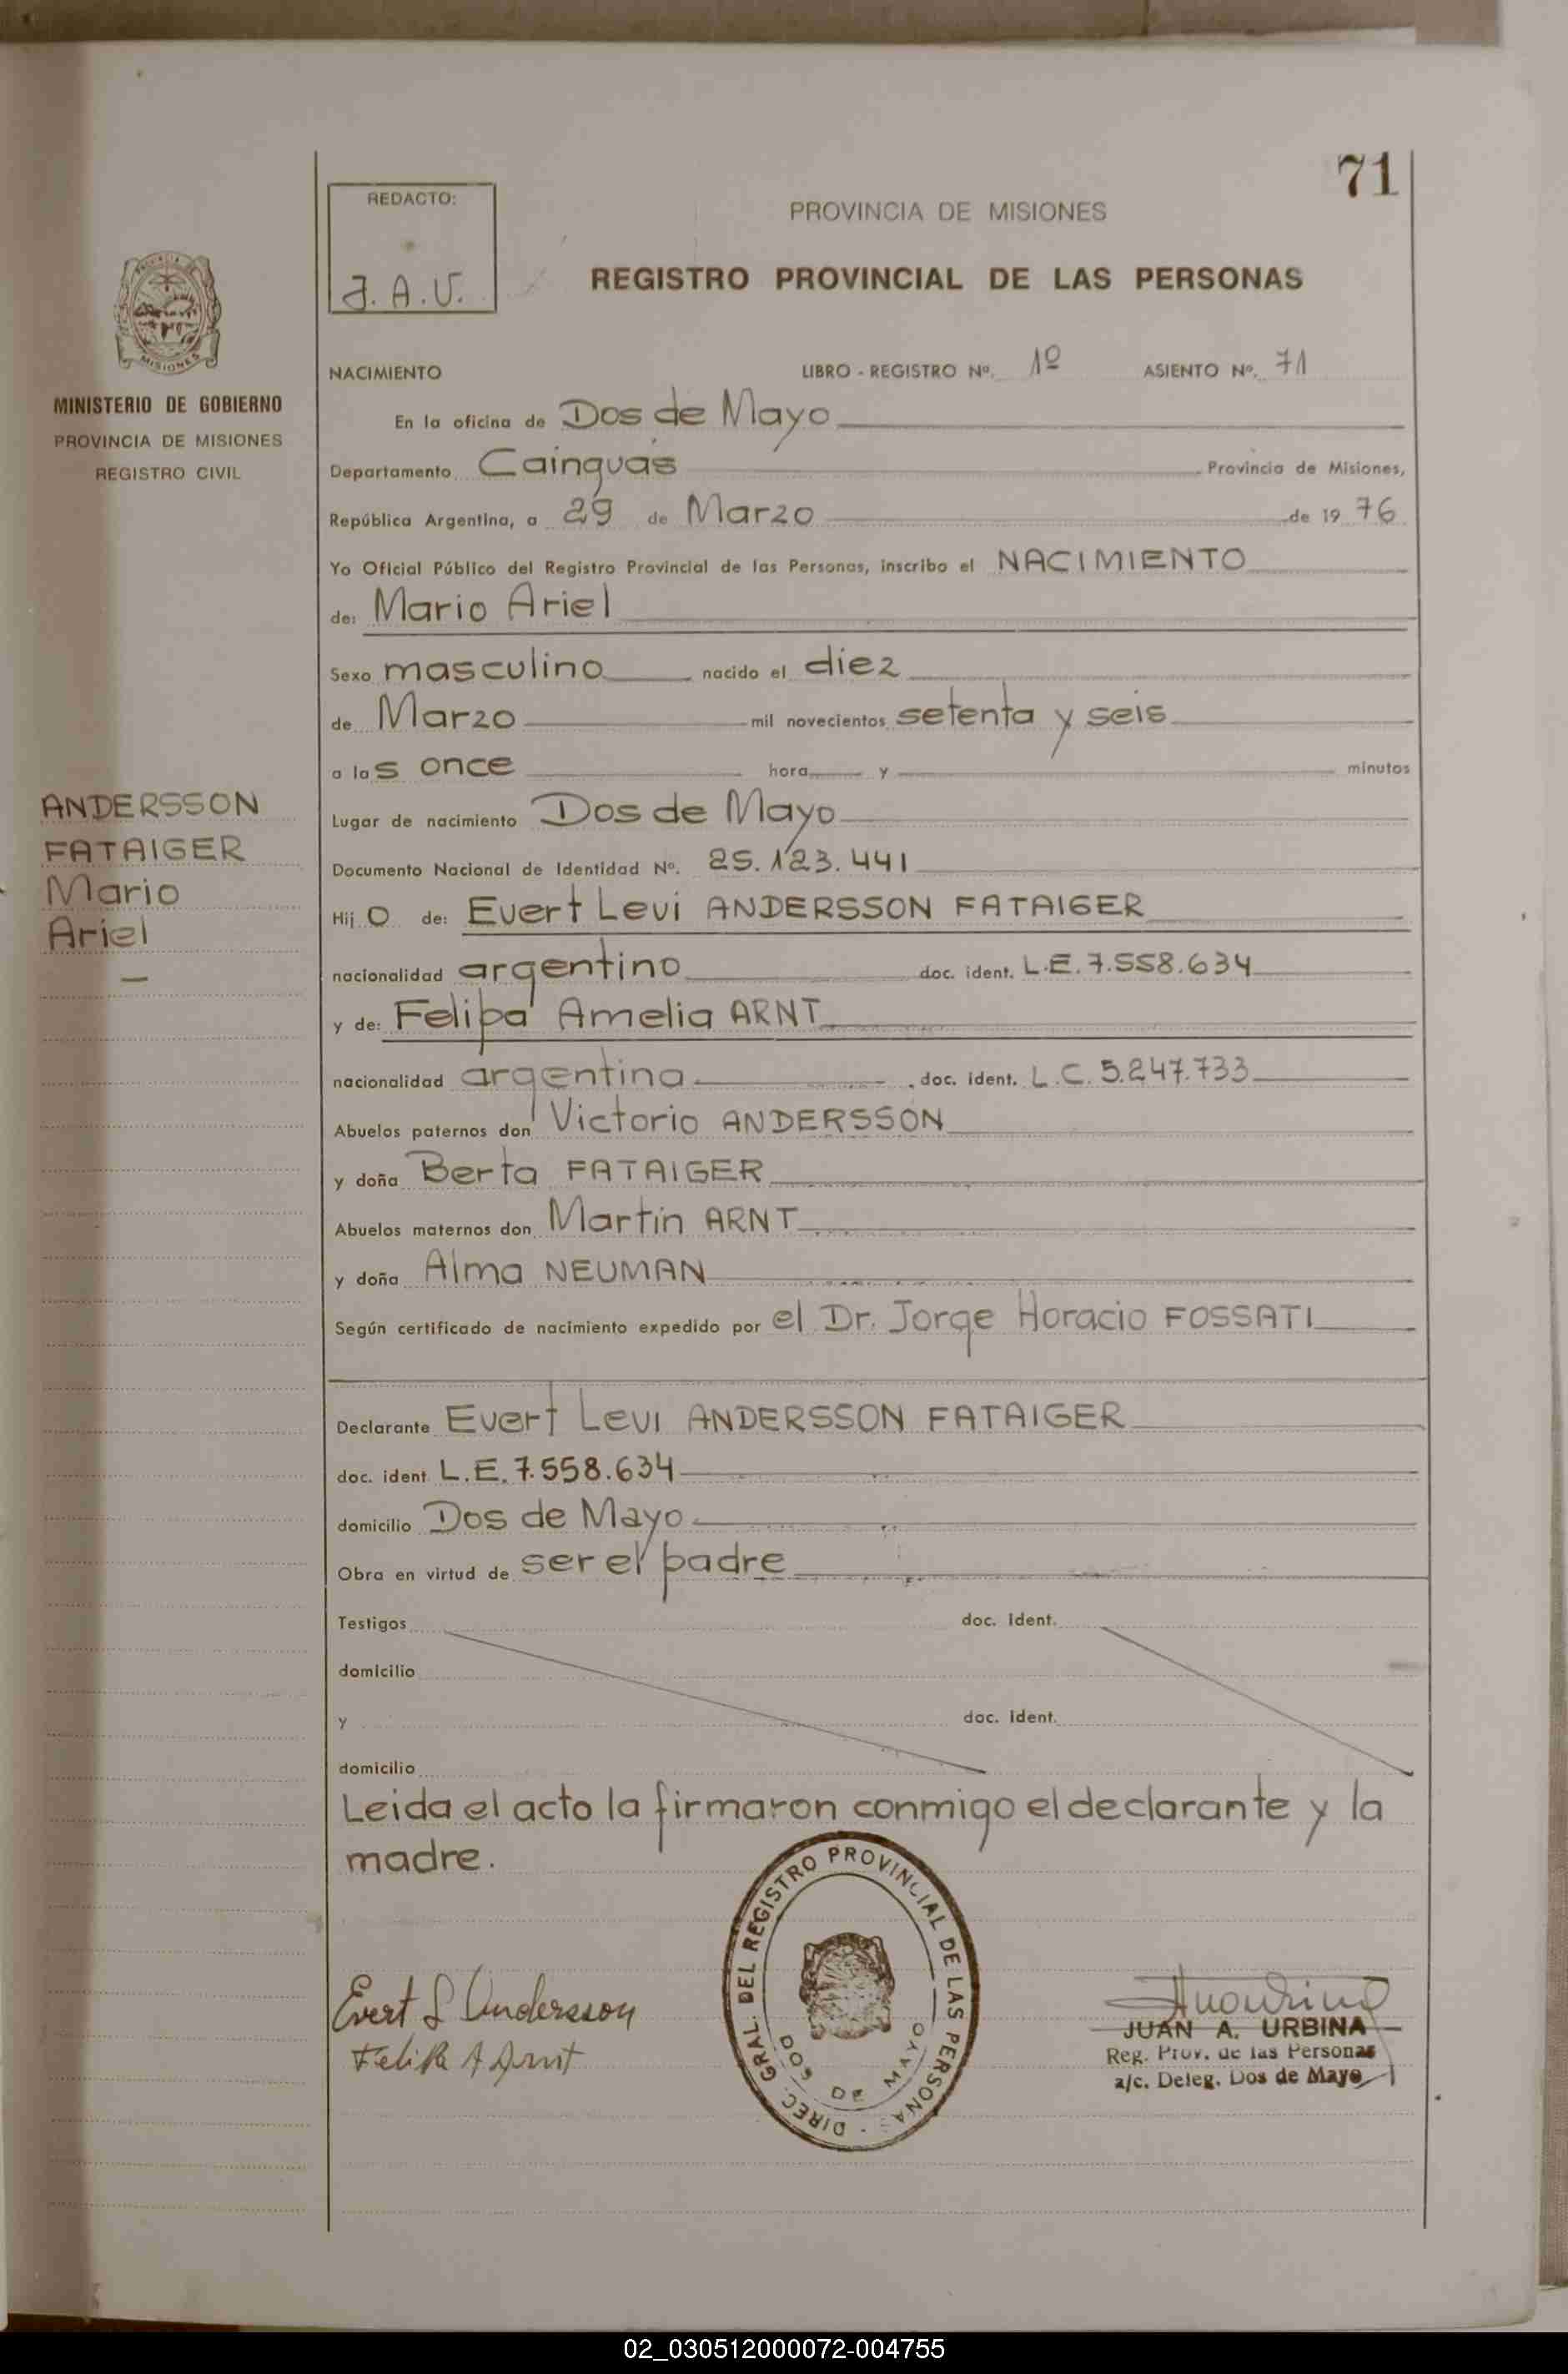 71
REDACTO:
J. A. U.
PROVINCIA DE MISIONES
REGISTRO PROVINCIAL DE LAS PERSONAS
MISIONES
MINISTERIO DE GOBIERNO
PROVINCIA DE MISIONES
REGISTRO CIVIL
ANDERSSON
FATAIGER
Mario
Ariel
NACIMIENTO LIBRO - REGISTRO Nº. 1º ASIENTO Nº. 71
En la oficina de Dos de Mayo
Departamento Cainguás Provincia de Misiones,
República Argentina, a 29 de Marzo de 19 76
Yo Oficial Público del Registro Provincial de las Personas, inscribo el NACIMIENTO
de: Mario Ariel
Sexo masculino nacido el diez
de Marzo mil novecientos setenta y seis
a las once hora y minutos
Lugar de nacimiento Dos de Mayo
Documento Nacional de Identidad Nº. 25.123.441
Hijo de: Evert Levi ANDERSSON FATAIGER
nacionalidad argentino doc. ident. L.E. 7.558.634
y de: Felipa Amelia ARNT
nacionalidad argentina doc. ident. L.C. 5.247.733
Abuelos paternos don Victorio ANDERSSON
y doña Berta FATAIGER
Abuelos maternos don Martín ARNT
y doña Alma NEUMAN
Según certificado de nacimiento expedido por el Dr. Jorge Horacio FOSSATI
Declarante Evert Levi ANDERSSON FATAIGER
doc. ident L.E. 7.558.634
domicilio Dos de Mayo
Obra en virtud de ser el padre
Testigos doc. ident.
domicilio
y doc. ident.
domicilio
Leida el acto la firmaron conmigo el declarante y la
madre.
DIREC. GRAL. DEL REGISTRO PROVINCIAL DE LAS PERSONAS
DOS DE MAYO
Evert L Andersson
Felipa A Arnt
JUAN A. URBINA
Reg. Prov. de las Personas
a/c. Deleg. Dos de Mayo
02_030512000072-004755